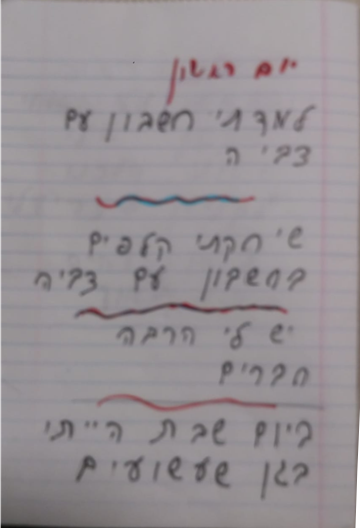 יום ראשון
למדתי חשבון עם
צביה
שיחקתי קלפים
בחשבון עם צביה
יש לי הרבה
חברים
ביום שבת הייתי
בגן שעשועים